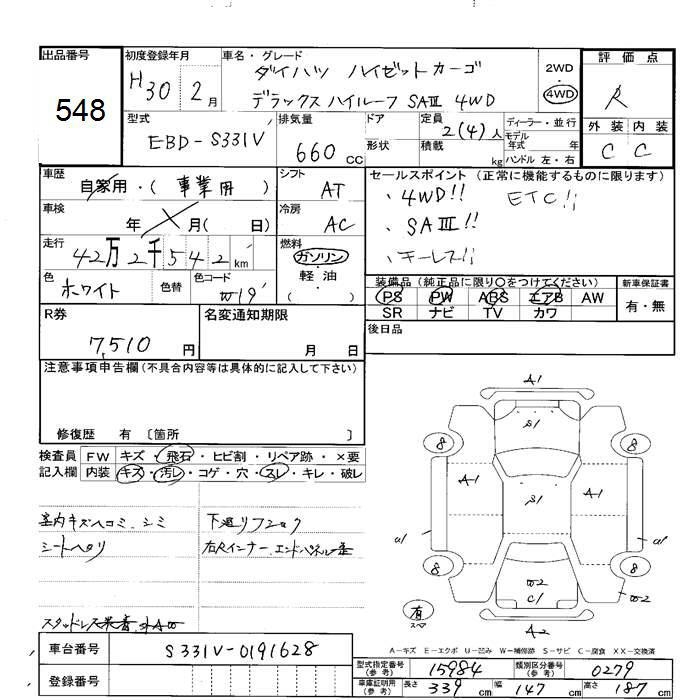 出品番号
548
初度登録年月
H30 2月
車名・グレード
ダイハツ ハイゼットカーゴ
デラックスハイルーフ SAⅢ 4WD
2WD
4WD
評価点
R
外装 内装
C C
型式
EBD-S331V
排気量
660 cc
ドア
形状
定員
2(4)人
積載 kg
ディーラー・並行
モデル年式 年
ハンドル 左・右
車歴
自家用・(事業用)
シフト
AT
セールスポイント (正常に機能するものに限ります)
・4WD!! ETC!!
・SAⅢ!!
・キーレス!!
車検
年 月( 日)
冷房
AC
走行
42万2千542km
燃料
ガソリン
軽油
( )
色
ホワイト
色替
色コード
W19
装備品 (純正品に限り○をつけてください)
PS PW ABS エアB AW
SR ナビ TV カワ
新車保証書
有・無
R券
7,510円
名変通知期限
月 日
後日品
注意事項申告欄(不具合内容等は具体的に記入して下さい)
修復歴 有 〔箇所 〕
検査員記入欄
FW キズ・飛石・ヒビ割・リペア跡・×要
内装 キズ・汚レ・コゲ・穴・スレ・キレ・破レ
室内キズヘコミ、シミ
シートヘタリ
下廻りフロック
右Rインナー、エンドパネル
スタッドレス
A1
S1
8 8
A1 S1 A1
a1 a1
8 8
W2
C1
W2
有
スペア
A2
A-キズ E-エクボ U-凹み W-補修跡 S-サビ C-腐食 XX-交換済
車台番号
S331V-0191628
登録番号
型式指定番号(参考)
15984
類別区分番号(参考)
0279
車庫証明用(参考)
長さ 339cm
幅 147cm
高さ 187cm